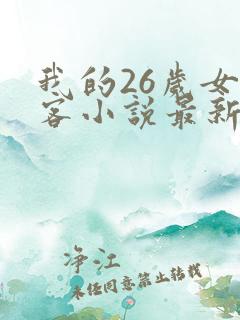 我的26歲女
客小說最新
净江
未经同意禁止转载